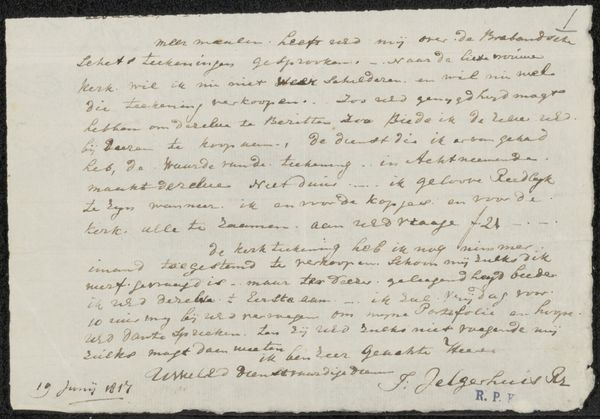 1
meermalen heeft Ued mij over de Brabandsche
Schets teekeningen gesprooken. — Naar de Lieve vrouwe
kerk wil ik nu niet schilderen en wil nu wel
die teekening verkoopen. Zoo Ued genegdheyd magt
hebben om dezelve te bezitten Zoo biede ik dezelve Ued
bij deezen te koop aan, de dienst die ik er van gehad
heb, de Waarde van de teekening in Acht neemende
maakt dezelve Niet duur — ik geloove Reedlyk
te zyn wanneer ik en voor de kopjes en voor de
kerk alle te zaamen aan Ued vraage f 21 — . —
De kerk teekening heb ik nog nimmer
imand toegestend te verkoopen Schoon mij zulks dik
werf gevraagd is — maar ter deeser geleegendheyd biede
ik Ued dezelve 't Eerste aan — ik zal Vrijdag voor
10 uur mij bij Ued vervoegen om myne Portefolie en hoope
Ued dan te spreeken. Ten zij Ued zulks niet voegende mij
zulks magt doen weeten
ik ben zeer Geachte Heer
UwelEd Dienstvaardige Dienaar
19 Junij 1817 J. Jelgerhuis Rz
R. P. K